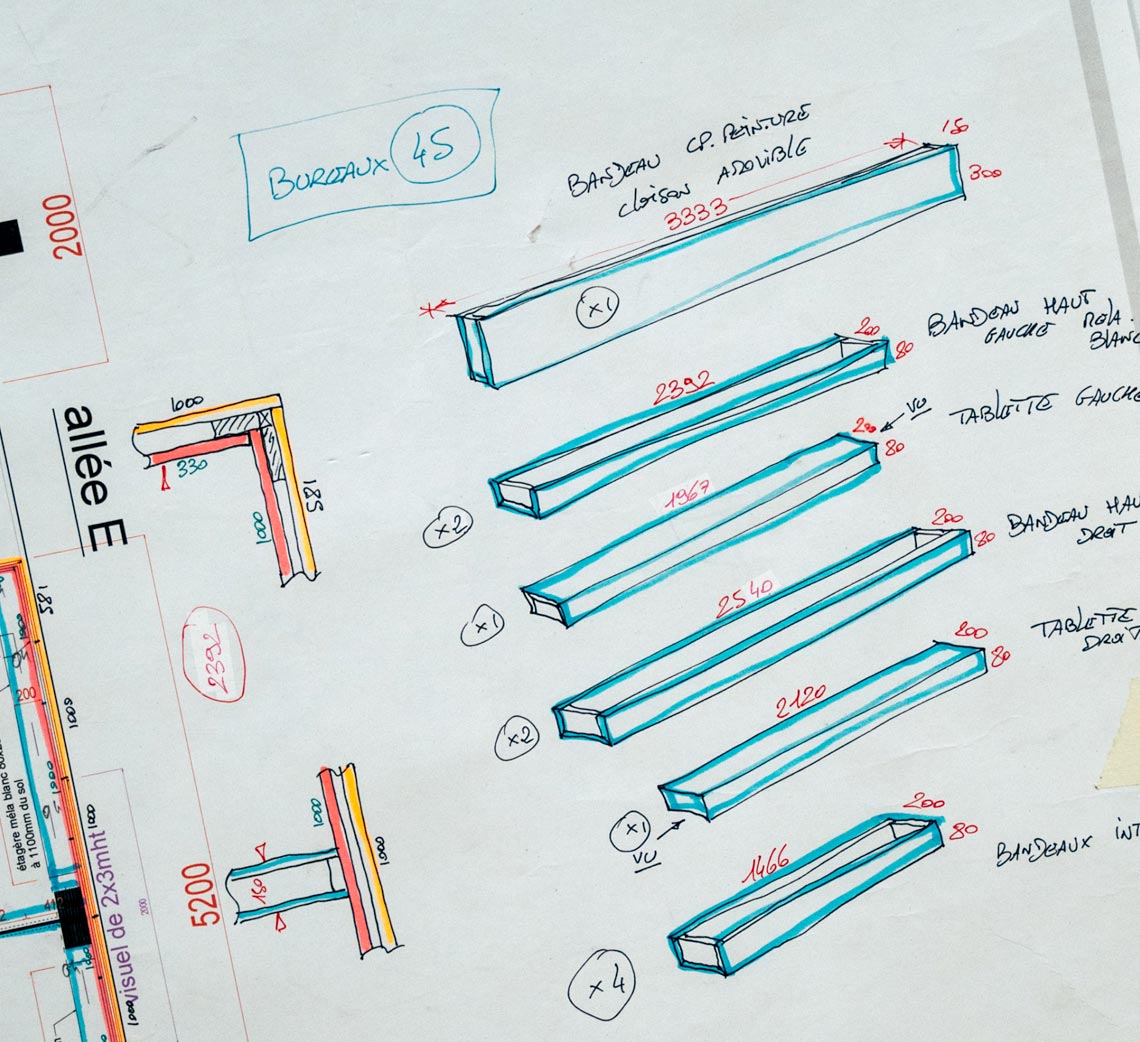 BUREAUX 45
BANDEAU CP. PEINTURE
cloison AMOVIBLE
3333
150
300
x1
BANDEAU HAUT
GAUCHE MELA.
BLANC
2392
200
80
x2
TABLETTE GAUCHE
VU
1967
200
80
x1
BANDEAU HAU
DROIT
2540
200
80
x2
TABLETTE
DROIT
2120
200
80
x1
VU
BANDEAUX INT
1466
200
80
x4
2000
allée E
1000
330
1000
581
2392
581
1000
200
1000
1000
étagère méla blanc
à 1100mm du sol
1000
visuel de 2x3mht
2000
5200
412
1000
1000
1000
150
1000